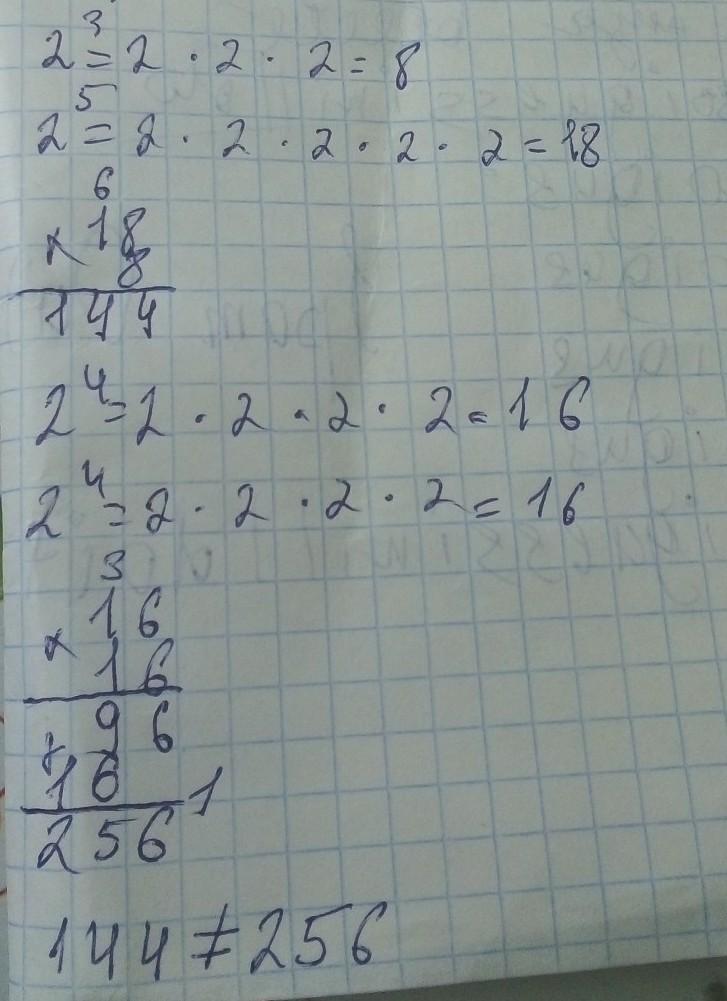 2³ = 2 · 2 · 2 = 8
2⁵ = 2 · 2 · 2 · 2 · 2 = 18
6
× 18
8
144
2⁴ = 2 · 2 · 2 · 2 = 16
2⁴ = 2 · 2 · 2 · 2 = 16
3
× 16
16
+ 96
16 1
256
144 ≠ 256